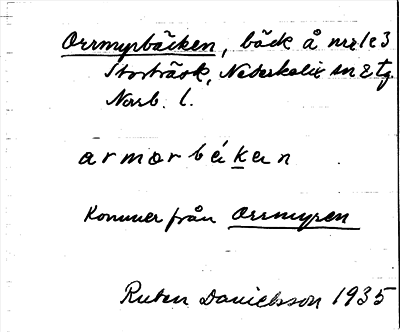 Orrmyrbäcken, bäck å nr 1 & 3
Storträsk, Nederkalix sn & tg.
Norrb. l.
armorbékan
Kommer från Orrmyren
Ruben Danielsson 1935